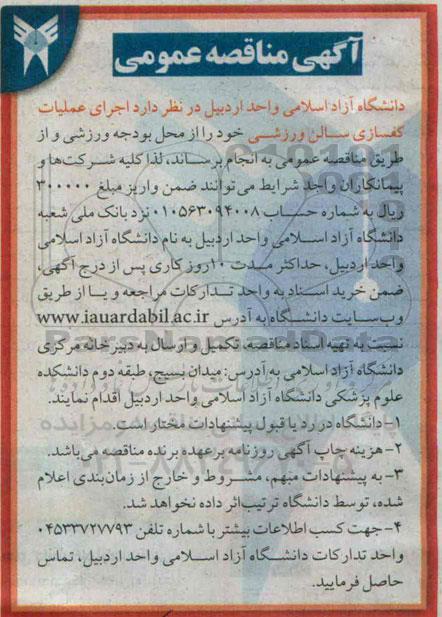 آگهی مناقصه عمومی
دانشگاه آزاد اسلامی واحد اردبیل در نظر دارد اجرای عملیات
کفسازی سالن ورزشی خود را از محل بودجه ورزشی و از
طریق مناقصه عمومی به انجام برساند، لذا کلیه شرکت‌ها و
پیمانکاران واجد شرایط می‌توانند ضمن واریز مبلغ ۳۰۰۰۰۰
ریال به شماره حساب ۰۱۰۵۶۳۰۹۴۰۰۸ نزد بانک ملی شعبه
دانشگاه آزاد اسلامی واحد اردبیل به نام دانشگاه آزاد اسلامی
واحد اردبیل، حداکثر مدت ۱۰ روز کاری پس از درج آگهی،
ضمن خرید اسناد به واحد تدارکات مراجعه و یا از طریق
وب‌سایت دانشگاه به آدرس www.iauardabil.ac.ir
نسبت به تهیه اسناد مناقصه، تکمیل و ارسال به دبیرخانه مرکزی
دانشگاه آزاد اسلامی به آدرس: میدان بسیج، طبقه دوم دانشکده
علوم پزشکی دانشگاه آزاد اسلامی واحد اردبیل اقدام نمایند.
۱- دانشگاه در رد یا قبول پیشنهادات مختار است.
۲- هزینه چاپ آگهی روزنامه برعهده برنده مناقصه می‌باشد.
۳- به پیشنهادات مبهم، مشروط و خارج از زمان‌بندی اعلام
شده، توسط دانشگاه ترتیب‌اثر داده نخواهد شد.
۴- جهت کسب اطلاعات بیشتر با شماره تلفن ۰۴۵۳۳۷۲۷۷۹۳
واحد تدارکات دانشگاه آزاد اسلامی واحد اردبیل، تماس
حاصل فرمایید.